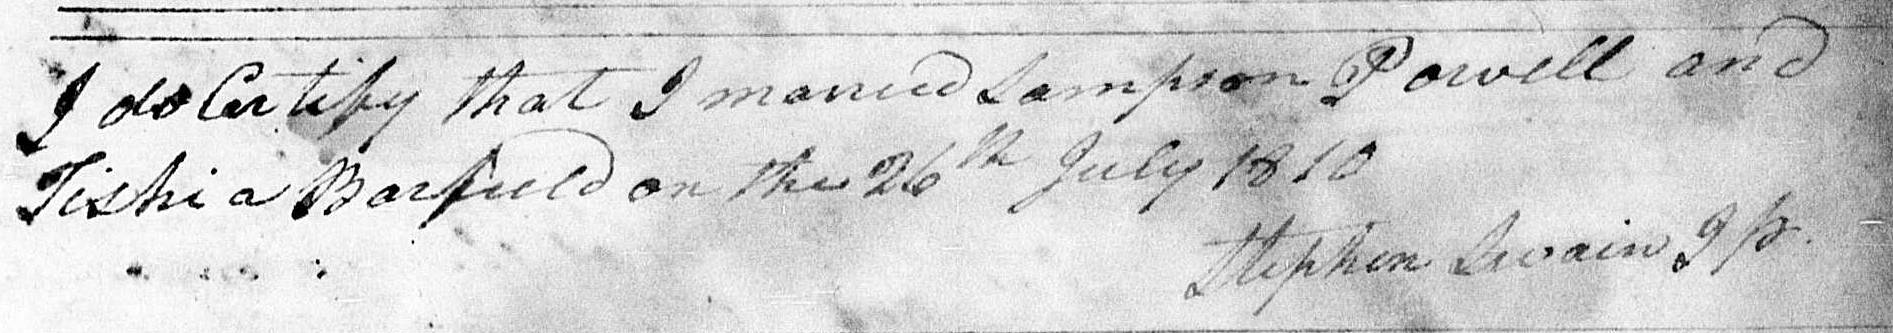 I do Certify that I maried Sampson Powell and
Tishia Barfield on the 26th July 1810
Stephen Swain Jp.